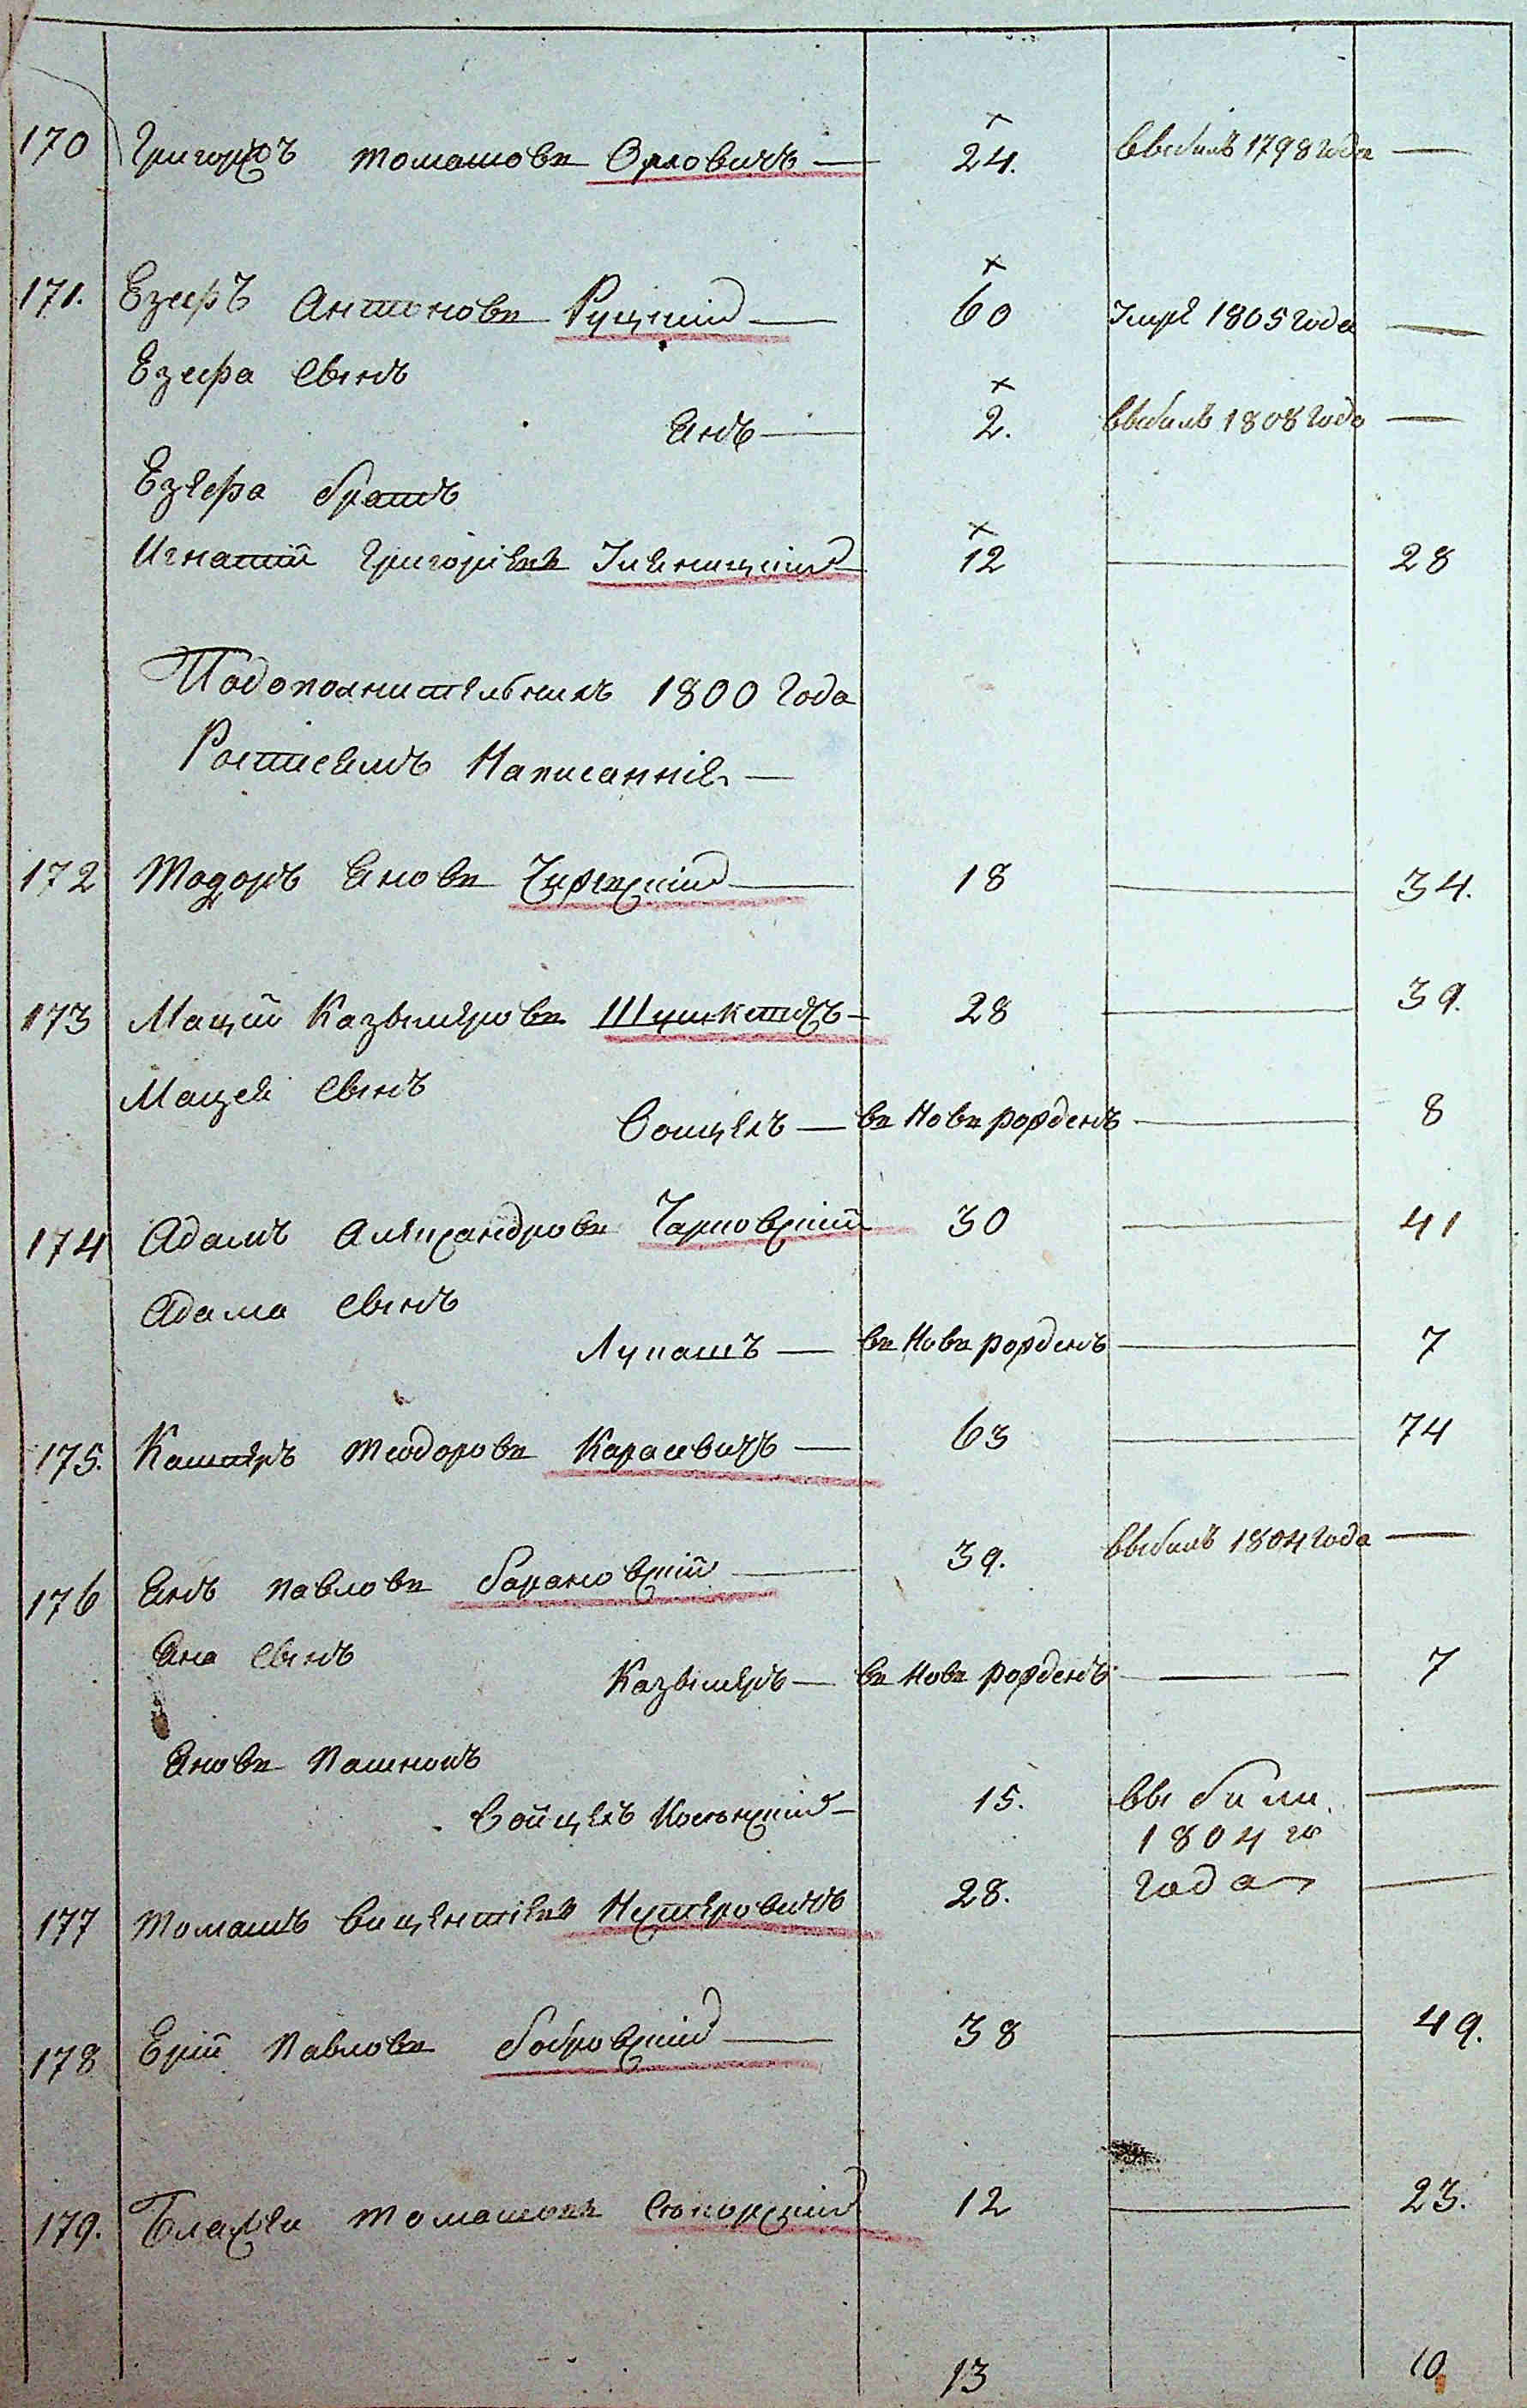 170 Григоръ Томашовъ Орловичъ — 24. выбылъ 1798 года —
171. Езефъ Антоновъ Руцкій — 60 Умре 1805 года —
Езефа сынъ
Янъ — 2. выбылъ 1808 года —
Езефа братъ
Игнатій Григоріевъ — 12 — 28
Подополнителнымъ 1800 года
Ростисямъ Написанніе —
172 Тодоръ Яновъ — 18 — 34.
173 Мацій Казымеровъ — 28 — 39.
Мацея сынъ
Войцехъ — въ Новъ рожденъ — 8
174 Адамъ Александровъ Чарновскій 30 — 41
Адама сынъ
Лукашъ — въ Новъ рожденъ — 7
175. Кашперъ Теодоровъ Карасевичъ — 63 — 74
176 Янъ Павловъ барановскій — 39. выбылъ 1804 года —
Яна сынъ
Казымеръ — въ Новъ рожденъ — 7
Яновъ Пасынокъ
Войцехъ — 15. выбыли —
1804 го
177 Томашъ вицентіевъ Нестеровичъ 28. года —
178 Ерій Павловъ бобровскій — 38 — 49.
179. Блажеи Томашовъ Сѣкорскій 12 — 23.
13 10